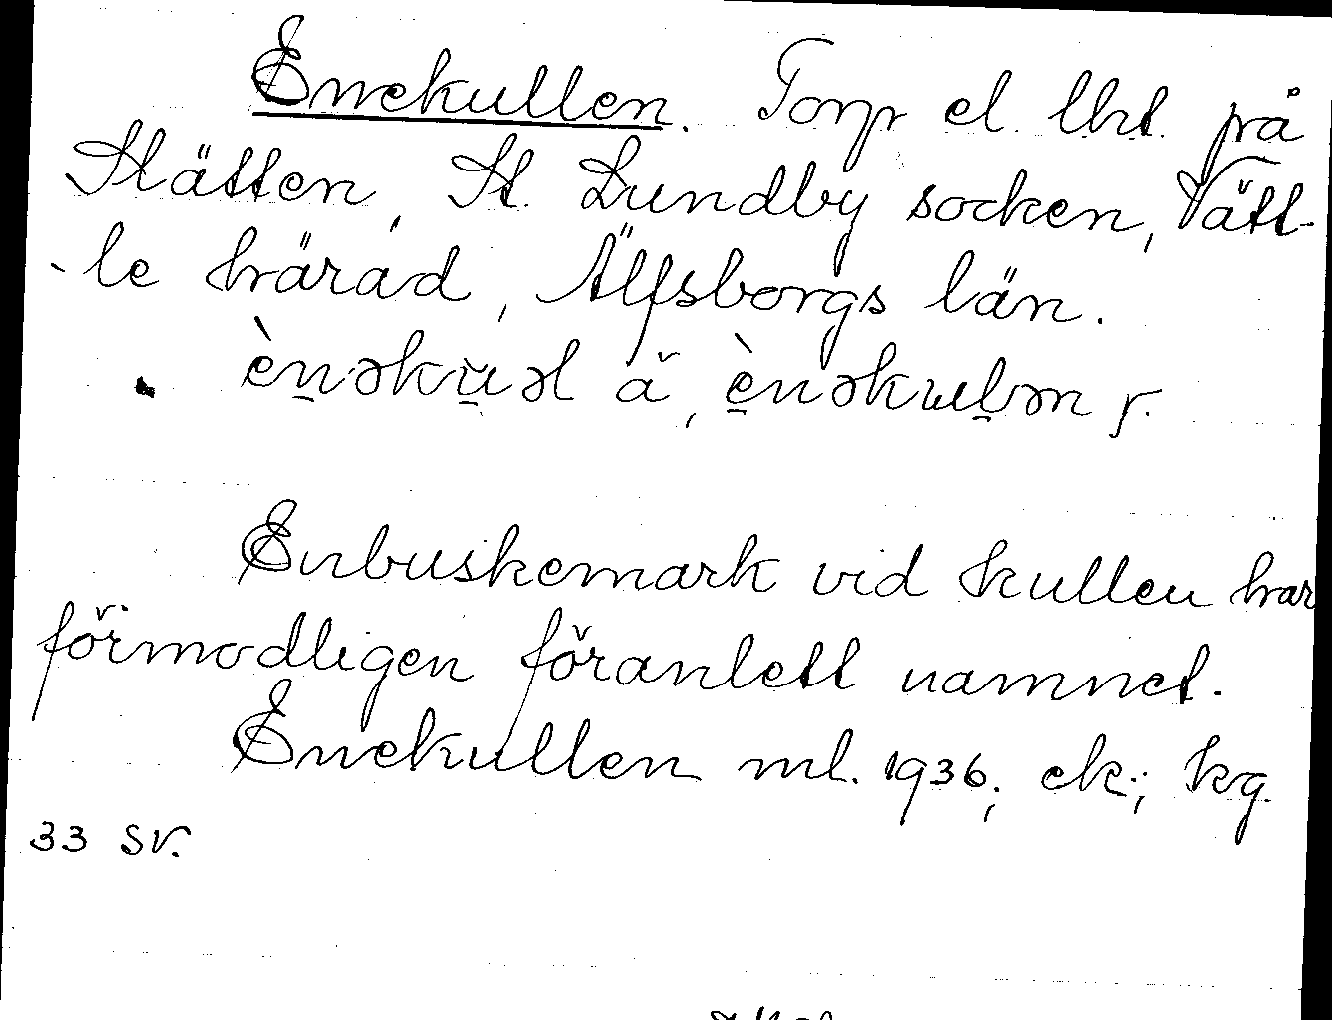 Enekullen. Torp el. lht. på
Slätten, St. Lundby socken, Vätt-
-le härad, Älfsborgs län.
ènəkuəl å, ènəkulən r.
Enbuskemark vid kullen har
förmodligen föranlett namnet.
Enekullen ml. 1936; ek.; kg.
33 sv.